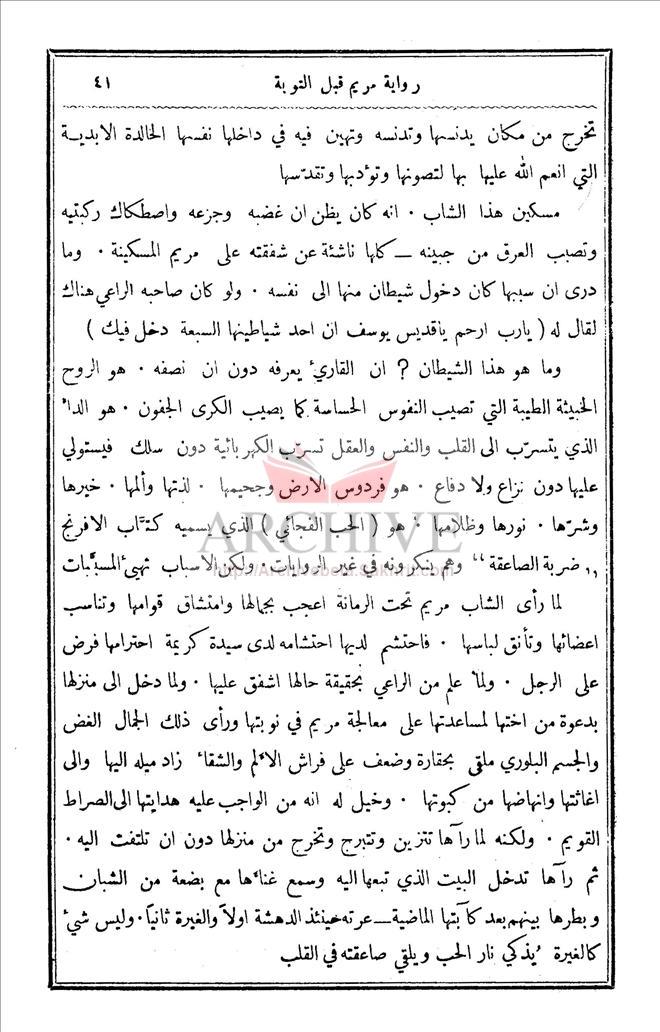 رواية مريم قبل التوبة ٤١
تخرج من مكان يدنسها وتدنسه وتهين فيه في داخلها نفسها الخالدة الابدية
التي انعم الله عليها بها لتصونها وتؤدبها وتقدّسها
مسكين هذا الشاب . انه كان يظن ان غضبه وجزعه واصطكاك ركبتيه
وتصبب العرق من جبينه — كلها ناشئة عن شفقته على مريم المسكينة . وما
درى ان سببها كان دخول شيطان منها الى نفسه . ولو كان صاحبه الراعي هناك
لقال له ( يارب ارحم ياقديس يوسف ان احد شياطينها السبعة دخل فيك )
وما هو هذا الشيطان ? ان القاريء يعرفه دون ان نصفه . هو الروح
الخبيثة الطيبة التي تصيب النفوس الحساسة كما يصيب الكرى الجفون . هو الداء
الذي يتسرّب الى القلب والنفس والعقل تسرّب الكهربائية دون سلك فيستولي
عليها دون نزاع ولا دفاع . هو فردوس الارض وجحيمها . لذتها وألمها . خيرها
وشرّها . نورها وظلامها . هو ( الحب الفجائي ) الذي يسميه كتّاب الافرنج
,, ضربة الصاعقة “ وهم ينكرونه في غير الروايات . ولكن الاسباب تهيء المسبَّبات
لما رأى الشاب مريم تحت الرمانة اعجب بجمالها وامتشاق قوامها وتناسب
اعضائها وتأنق لباسها . فاحتشم لديها احتشامه لدى سيدة كريمة احترامها فرض
على الرجل . ولما علم من الراعي بحقيقة حالها اشفق عليها . ولما دخل الى منزلها
بدعوة من اختها لمساعدتها على معالجة مريم في نوبتها ورأى ذلك الجمال الغض
والجسم البلوري ملقى بحقارة وضعف على فراش الالم والشقاء زاد ميله اليها والى
اغاثتها وانهاضها من كبوتها . وخيل له انه من الواجب عليه هدايتها الى الصراط
القويم . ولكنه لما رآها تتزين وتتبرج وتخرج من منزلها دون ان تلتفت اليه .
ثم رآها تدخل البيت الذي تبعها اليه وسمع غناءها مع بضعة من الشبان
وبطرها بينهم بعد كآبتها الماضية — عرته حينئذ الدهشة اولاً والغيرة ثانياً . وليس شيء
كالغيرة يُذكي نار الحب ويلقي صاعقته في القلب
ARCHIVE